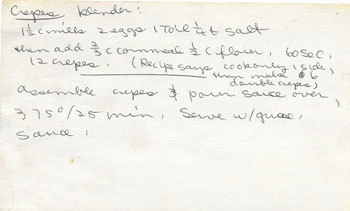 Crepes blender:
1½ c milk 2 eggs 1 T oil ¼ t salt
then add ⅔ c cornmeal ½ c flour, 60 sec.
12 crepes. (Recipe says cook only 1 side,
then make 6
double crepes)
assemble crepes & pour sauce over,
375°/25 min. Serve w/guac.
sauce.